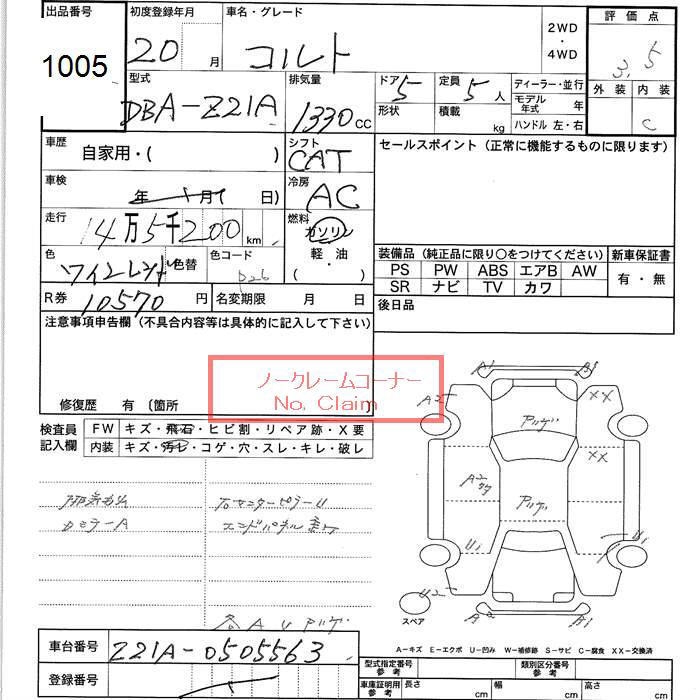 出品番号 初度登録年月 車名・グレード 評価点
1005 20 月 コルト 2WD・4WD 3.5
型式 排気量 ドア 5 定員 5 人 ディーラー・並行 外装 内装
DBA-Z21A 1330 CC 形状 積載 kg モデル年式 年 C
ハンドル 左・右
車歴 シフト セールスポイント (正常に機能するものに限ります)
自家用・( ) CAT
車検 年 月 日) 冷房 AC
走行 14万5千200 km 燃料 ガソリン
色 ワインレッド 色替 色コード P26 軽・油・( )
装備品 (純正品に限り○をつけてください) 新車保証書
PS PW ABS エアB AW 有・無
SR ナビ TV カワ
R券 10570 円 名変期限 月 日 後日品
注意事項申告欄 (不具合内容等は具体的に記入して下さい)
ノークレームコーナー
No, Claim
修復歴 有 〔箇所
検査員記入欄 FW キズ・飛石・ヒビ割・リペア跡・X要
内装 キズ・汚レ・コゲ・穴・スレ・キレ・破レ
A1 B1
A2 XX
XX
A2
U1 U1
U2
A2 B1
カミラーA
エンドパネル
スペア
A-キズ E-エクボ U-凹み W-補修跡 S-サビ C-腐食 XX-交換済
車台番号 Z21A-0505563
型式指定番号 参考 類別区分番号 参考
登録番号
車庫証明用 参考 長さ cm 幅 cm 高さ cm